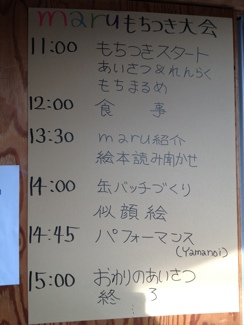 maruもちつき大会
11:00 もちつきスタート
あいさつ&れんらく
もちまるめ
12:00 食 事
13:30 maru紹介
絵本読み聞かせ
14:00 缶バッチづくり
似顔絵
14:45 パフォーマンス
(Yamanoi)
15:00 おわりのあいさつ
終 3